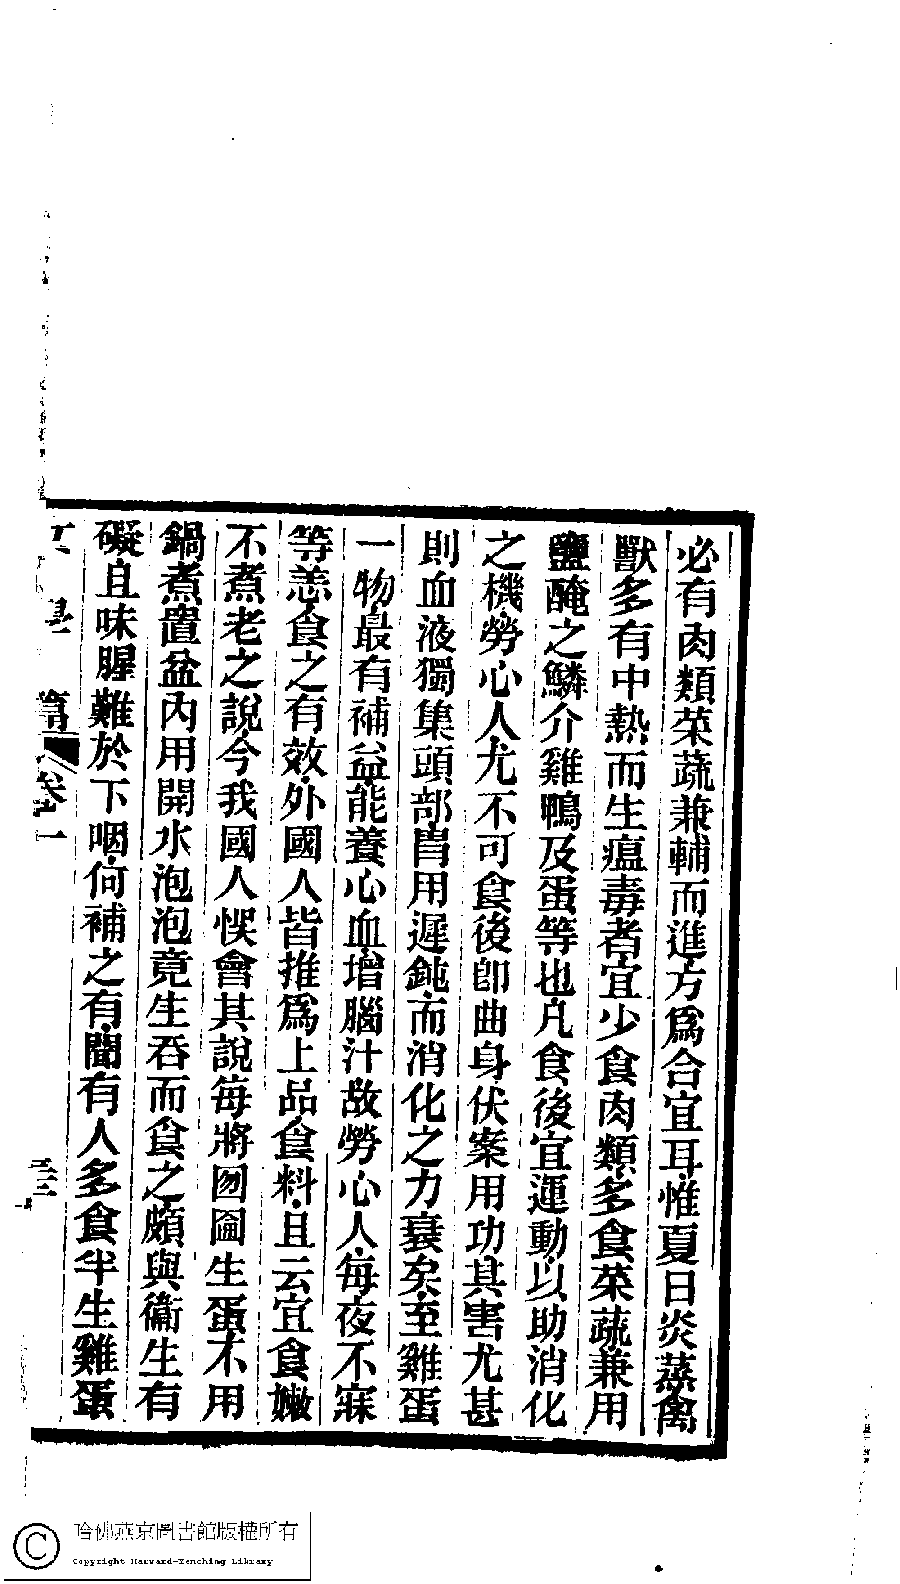 必有肉類菜蔬兼輔而進方爲合宜耳惟夏日炎蒸禽
獸多有中熱而生瘟毒者宜少食肉類多食菜蔬兼用
鹽醃之鱗介雞鴨及蛋等也凡食後宜運動以助消化
之機勞心人尤不可食後卽曲身伏案用功其害尤甚
則血液獨集頭部胃用遲鈍而消化之力衰矣至雞蛋
一物最有補益能養心血增腦汁故勞心人每夜不寐
等恙食之有效外國人皆推爲上品食料且云宜食嫩
不煮老之說今我國人悞會其說每將囫圇生蛋不用
鍋煮置盆內用開水泡泡竟生吞而食之頗與衞生有
礙且味腥難於下咽何補之有聞有人多食半生雞蛋
卷一
哈佛燕京圖書館版權所有
Copyright Harvard-Yenching Library